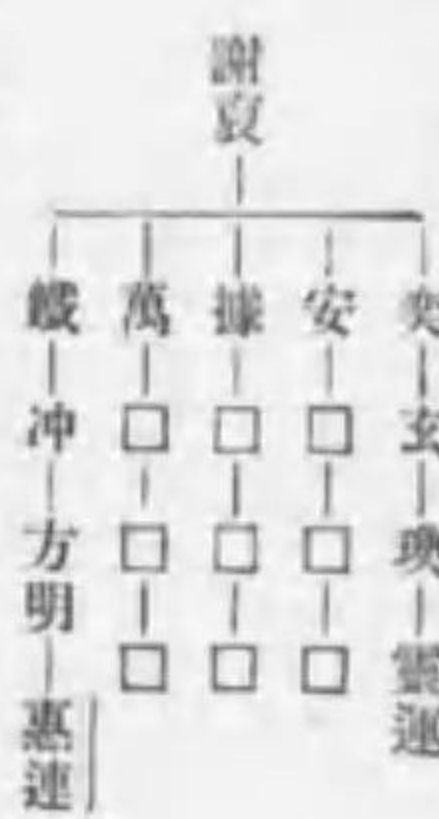 謝裒
奕
玄
瑍
靈運
安
□
□
□
據
□
□
□
萬
□
□
□
鐵
冲
方明
惠連